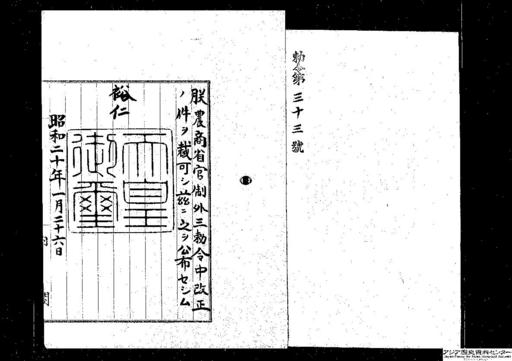 勅令第三十三號
朕農商省官制外三勅令中改正
ノ件ヲ裁可シ茲ニ之ヲ公布セシム
裕仁
天皇御璽
昭和二十年一月二十六日
アジア歴史資料センター